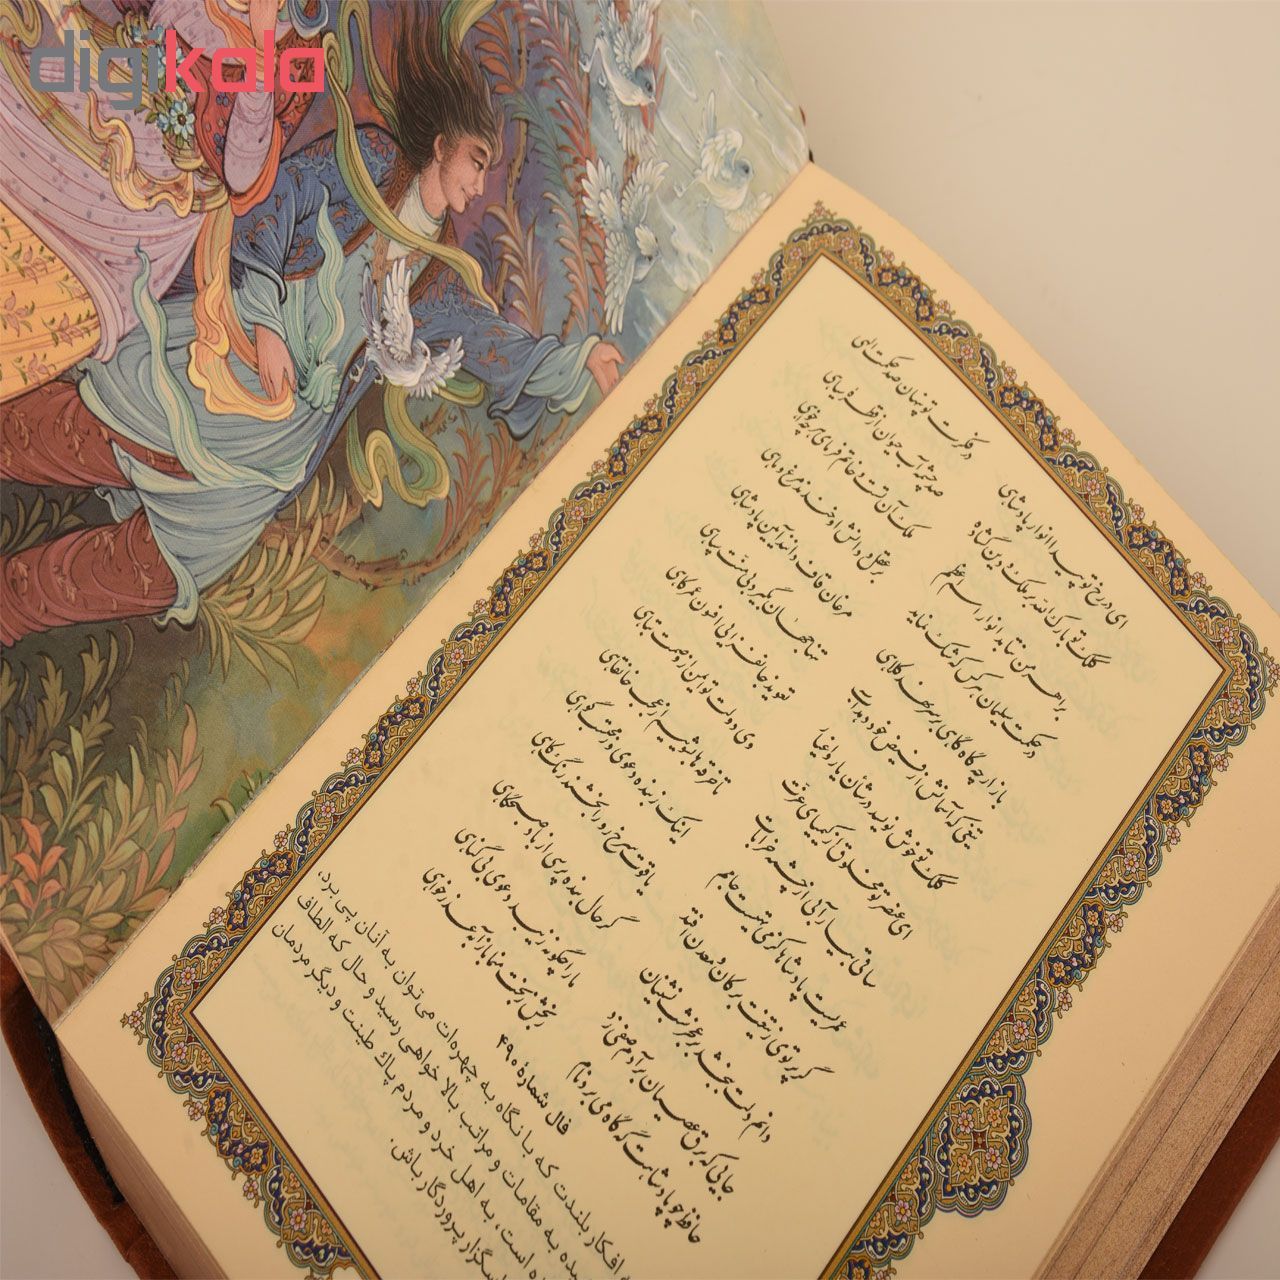 digikala
ای در رخ تو پیدا انوار پادشاهی
در فکرت تو پنهان صد حکمت الهی
کلک تو بارک الله بر ملک و دین گشاده
صد چشمه آب حیوان از قطره سیاهی
بر اهرمن نتابد انوار اسم اعظم
ملک آن تست و خاتم فرمای هر چه خواهی
در حکمت سلیمان هر کس که شک نماید
بر عقل و دانش او خندند مرغ و ماهی
باز ار چه گاه گاهی بر سر نهد کلاهی
مرغان قاف دانند آیین پادشاهی
تیغی که آسمانش از فیض خود دهد آب
تنها جهان بگیرد بی منت سپاهی
کلک تو خوش نویسد در شان یار و اغیار
تعویذ جانفزایی افسون عمر کاهی
ای عنصر تو مخلوق از کیمیای عزت
وی دولت تو ایمن از وصمت تباهی
ساقی بیار آبی از چشمه خرابات
تا خرقه ها بشوییم از عجب خانقاهی
عمریست پادشاها کز می تهیست جامم
اینک ز بنده دعوی وز محتسب گواهی
گر پرتوی ز تیغت بر کان و معدن افتد
یاقوت سرخ رو را بخشند رنگ کاهی
دانم دلت ببخشد بر عجز شب نشینان
گر حال بنده پرسی از باد صبحگاهی
جایی که برق عصیان بر آدم صفی زد
ما را چگونه زیبد دعوی بی گناهی
حافظ چو پادشاهت گه گاه می برد نام
رنجش ز بخت منما باز آ به عذرخواهی
فال شماره ۴۹۰
افکار بلندت که با نگاه به چهره‌ات می‌توان به آنان پی برد،
به مقامات و مراتب بالا خواهی رسید و حال که الطاف
است، به اهل خرد و مردم پاك طینت و دیگر مردمان
پروردگار باش.